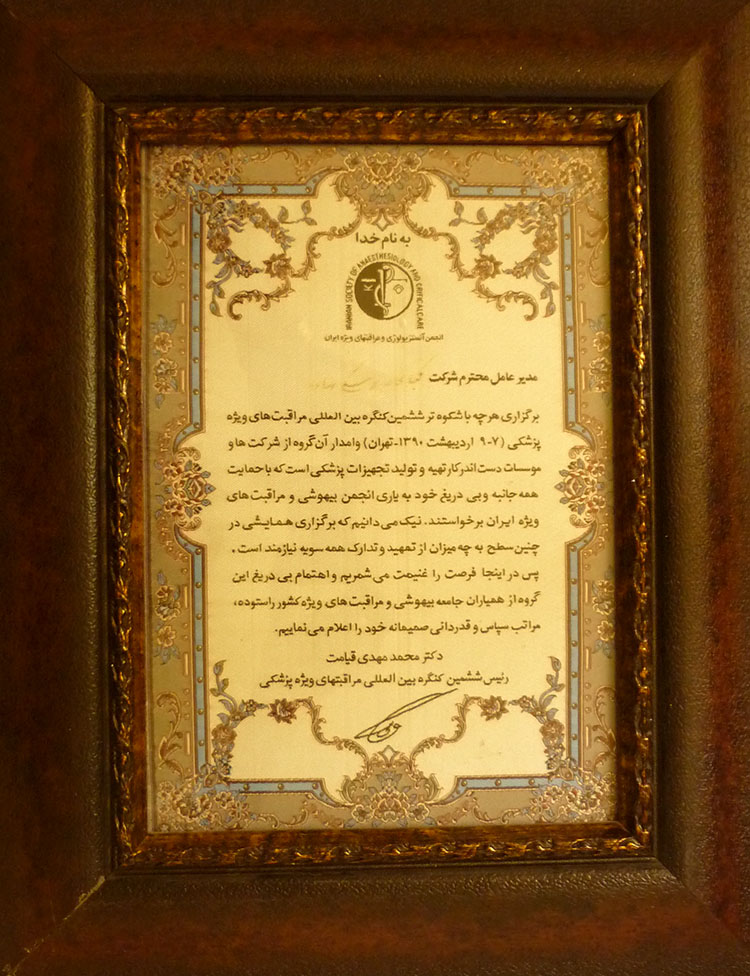 به نام خدا
IRANIAN SOCIETY OF ANAESTHESIOLOGY AND CRITICAL CARE
انجمن آنستزیولوژی و مراقبتهای ویژه ایران
مدیر عامل محترم شرکت
برگزاری هر چه با شکوه تر ششمین کنگره بین المللی مراقبت های ویژه
پزشکی (۷-۹ اردیبهشت ۱۳۹۰-تهران) وامدار آن گروه از شرکت ها و
موسسات دست اندر کار تهیه و تولید تجهیزات پزشکی است که با حمایت
همه جانبه و بی دریغ خود به یاری انجمن بیهوشی و مراقبت های
ویژه ایران برخواستند. نیک می دانیم که برگزاری همایشی در
چنین سطح به چه میزان از تمهید و تدارک همه سویه نیازمند است.
پس در اینجا فرصت را غنیمت می شمریم و اهتمام بی دریغ این
گروه از همیاران جامعه بیهوشی و مراقبت های ویژه کشور را ستوده،
مراتب سپاس و قدردانی صمیمانه خود را اعلام می نماییم.
دکتر محمد مهدی قیامت
رئیس ششمین کنگره بین المللی مراقبتهای ویژه پزشکی